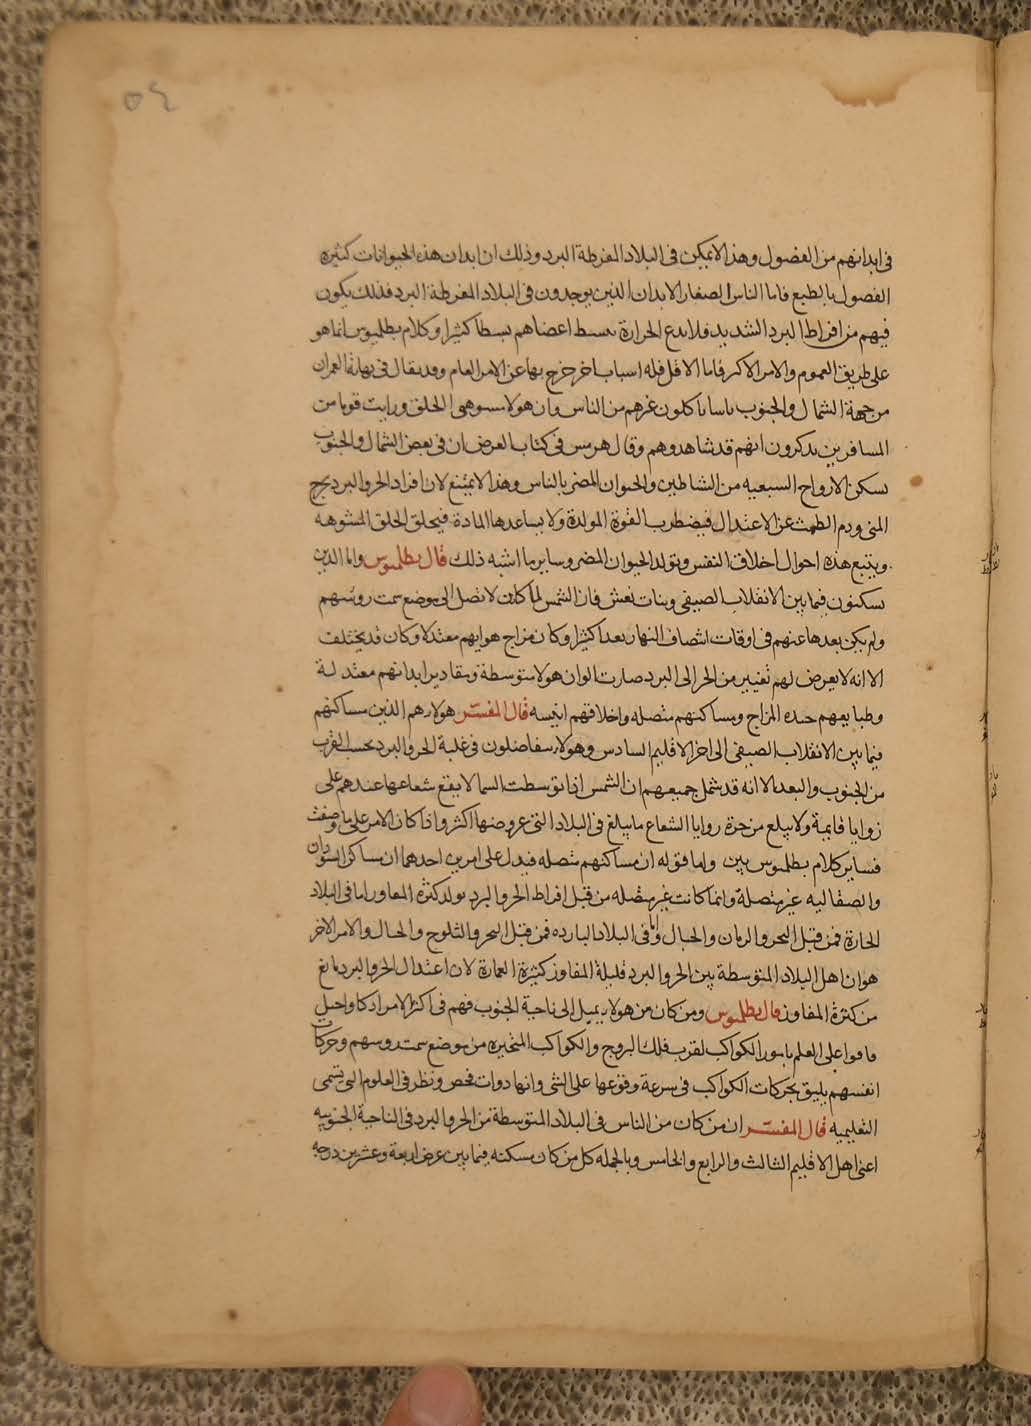 ٥٤
فى ابدانهم من الفضول وهذا لا يمكن فى البلاد المفرطة البرد وذلك ان ابدان هذه الحيوانات كثيره
الفضول بالطبع فاما الناس الصغار الابدان الذين يوجدون فى البلاد المفرطة البرد فذلك يكون
فيهم من افراط البرد الشديد فلا يدع الحرارة تبسط اعضاهم بسطا كثيرا وكلام بطلميوس انما هو
على طريق العموم والامر الاكثر فاما الاقل فله اسباب اخر خرج بها عن الامر العام وقد يقال فى نهاية العمران
من جهة الشمال والجنوب ناسا ياكلون غيرهم من الناس وان هولا مشوهى الخلق ورايت قوما من
المسافرين يذكرون انهم قد شاهدوهم وقال هرمس فى كتاب العرض ان فى بعض الشمال والجنوب
تسكن الارواح السبعيه من الشياطين والحيوان المضر بالناس وهذا لا يمتنع لان افراد الحر والبرد يخرج
المنى ودم الطمث عن الاعتدال فيضطرب القوة المولدة ولا يساعدها المادة فيخلق الخلق المشوهه
ويتبع هذه احوال اخلاق النفس وتولد الحيوان المضر وساير ما اشبه ذلك قال بطلميوس واما الذين
يسكنون فيما بين الانقلاب الصيفى وبنات نعش فان الشمس لما كانت لا تصل الى موضع سمت روسهم
ولم يكن بعدها عنهم فى اوقات انتصاف النهار بعدا كثيرا وكان مزاج هوايهم معتدلا وكان قد يختلف
الا انه لا يعرض لهم تغيير من الحر الى البرد صارت الوان هولا متوسطة ومقادير ابدانهم معتدلة
وطبايعهم حسنه المزاج ومساكنهم متصله واخلاقهم انيسه قال المفسر هولا هم الذين مساكنهم
فيما بين الانقلاب الصيفى الى اخر الاقليم السادس وهولا يتفاضلون فى غلبة الحر والبرد بحسب القرب
من الجنوب والبعد الا انه قد شمل جميعهم ان الشمس اذا توسطت السما لا يقع شعاعها عندهم على
زوايا قايمة ولا يبلغ من حدة زوايا الشعاع ما يبلغ فى البلاد التى عروضها اكثر واذا كان الامر على ما وصفت
فساير كلام بطلميوس بين واما قوله ان مساكنهم متصله فيدل على امرين احدهما ان مساكن السودان
والصقالبه غير متصلة وانما كانت غير متصله من قبل افراط الحر والبرد تولد كثرة المفاوز اما فى البلاد
الحارة فمن قبل البحر والرمال والجبال واما فى البلاد البارده فمن قبل البحر والثلوج والجبال والامر الاخر
هو ان اهل البلاد المتوسطة بين الحر والبرد قليلة المفاوز كثيرة العمارة لان اعتدال الحر والبرد مانع
من كثرة المفاوز قال بطلميوس ومن كان من هولا يميل الى ناحية الجنوب فهم فى اكثر الامر اذكا واحيل
واقوا على العلم بامور الكواكب لقرب فلك البروج والكواكب المتحيره من موضع سمت روسهم وحركات
انفسهم يليق بحركات الكواكب فى سرعة وقوعها على الشى وانها ذوات فحص ونظر فى العلوم التى تسمى
التعليميه قال المفسر ان من كان من الناس فى البلاد المتوسطة من الحر والبرد فى الناحية الجنوبيه
اعنى اهل الاقليم الثالث والرابع والخامس وبالجمله كل من كان مسكنه فيما بين عرض اربعة وعشرين درجه